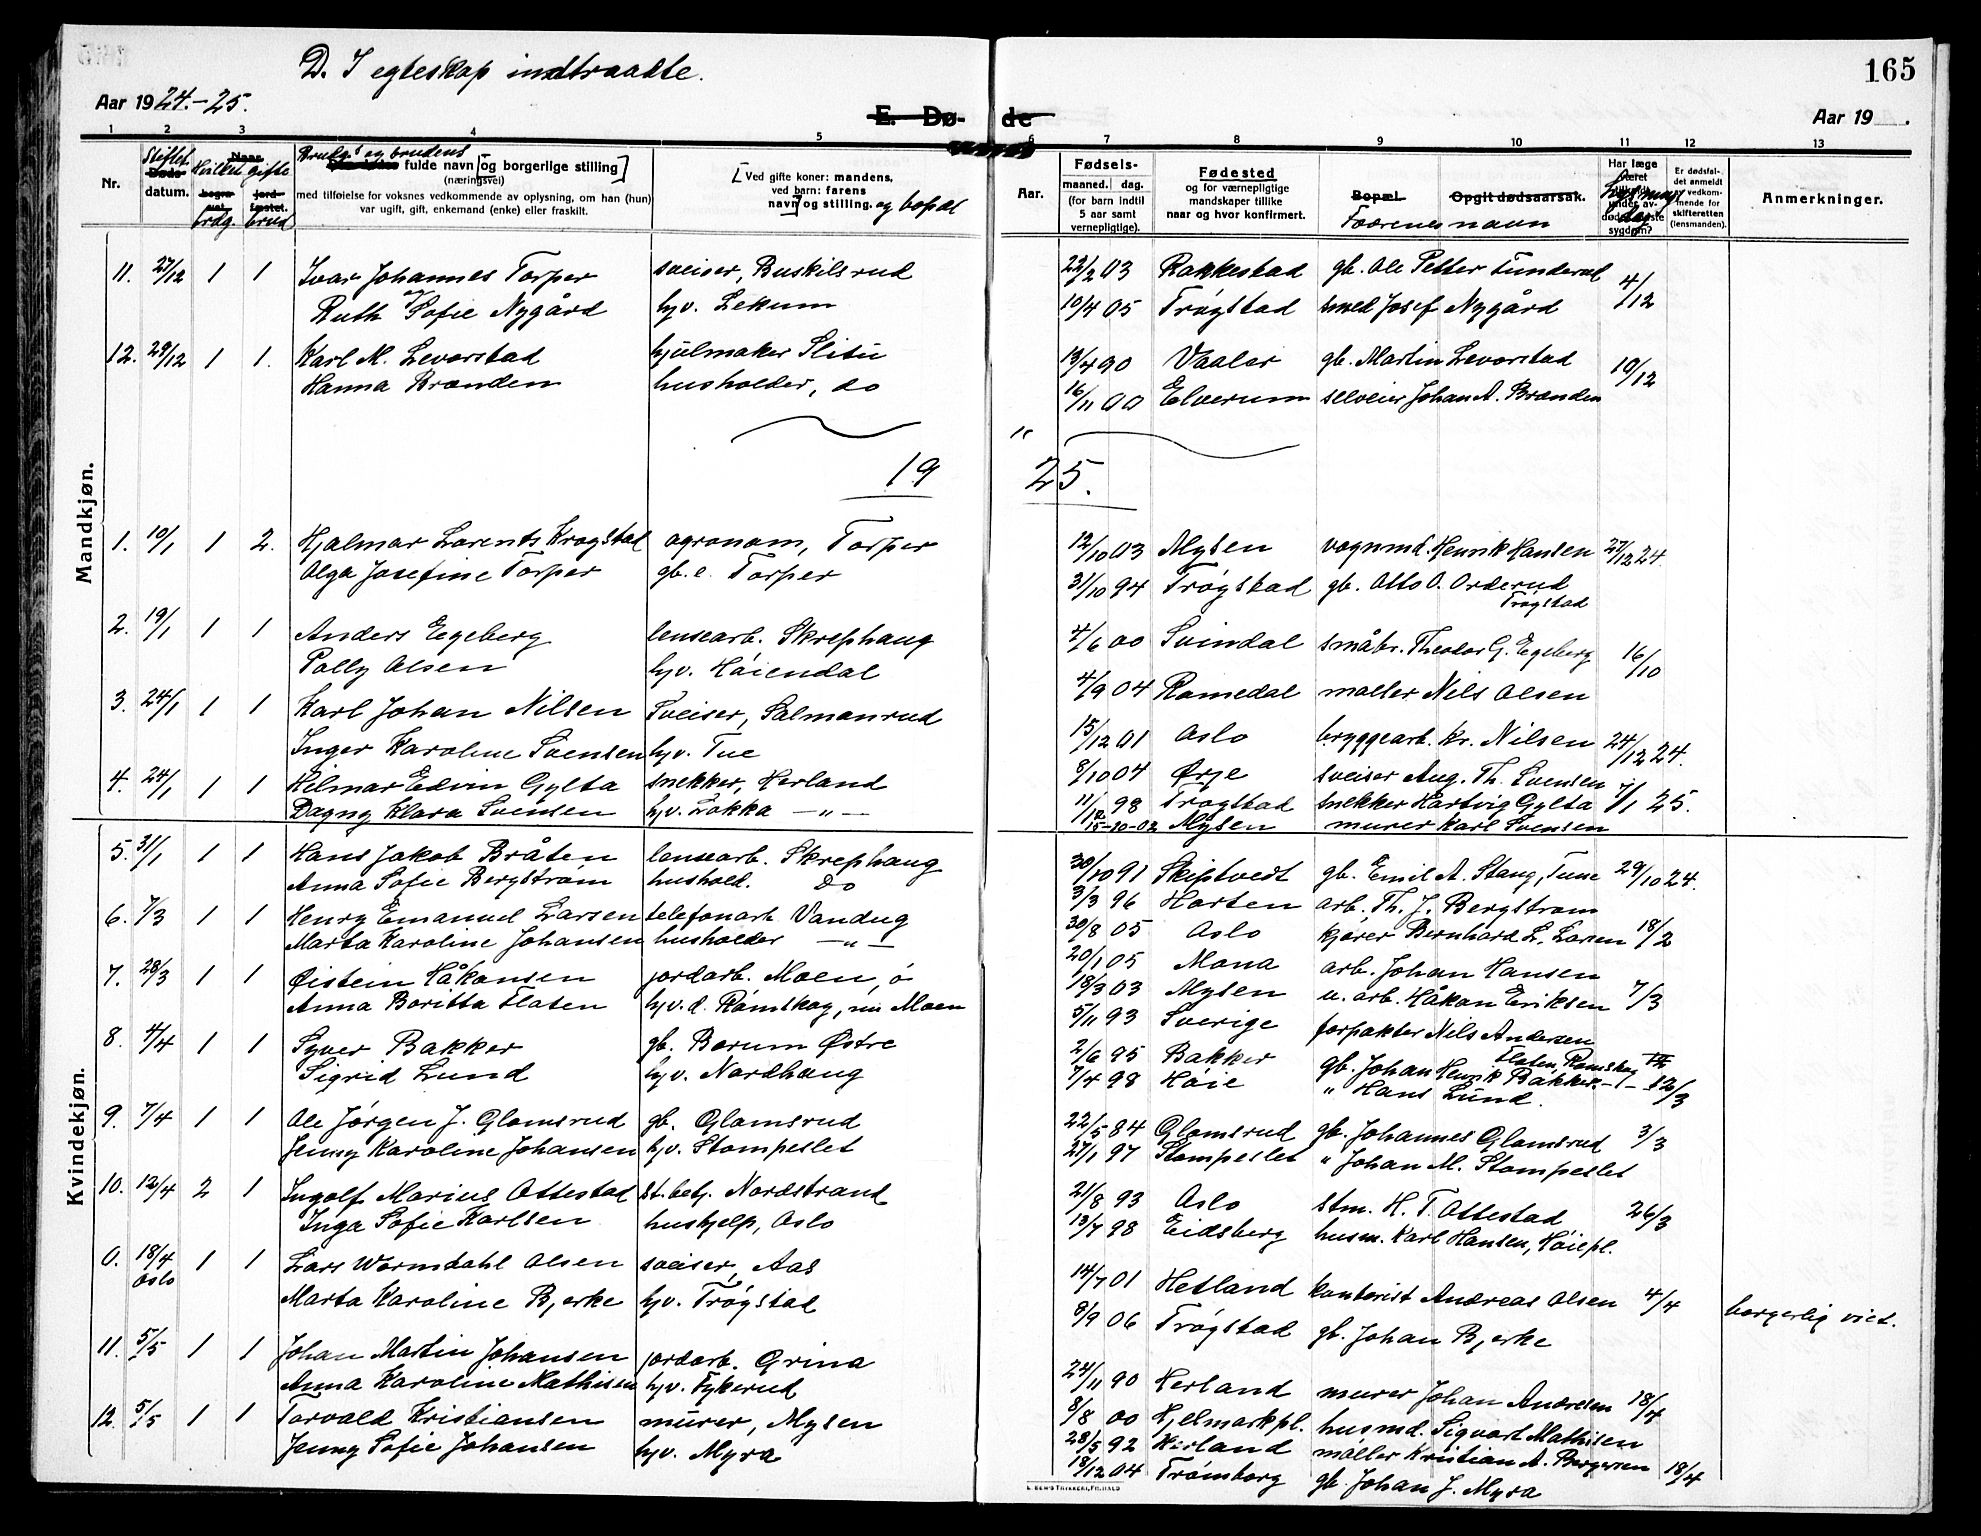 165
D. I egteskap indtraadte.
Aar 1924.-25.
E. Dø- de
Aar 19 .
1 2 3 4 5 6 7 8 9 10 11 12 13
Nr.
Stiftet datum.
Hvilket gifte
brdg. brud
Brudg.s og brudens fulde navn og borgerlige stilling
(næringsvei)
med tilføielse for voksnes vedkommende av oplysning, om han (hun)
var ugift, gift, enkemand (enke) eller fraskilt.
Ved gifte koner: mandens,
ved barn: farens
navn og stilling. og bopæl
Aar.
Fødsels-
maaned. dag.
(for barn indtil
5 aar samt
vernepligtige).
Fødested
og for værnepligtige
mandskaper tillike
naar og hvor konfirmert.
Bopæl. Opgit dødsaarsak.
Fædrenes navn
Har læge
været
sygdom?
Er dødsfal-
det anmeldt
vedkom-
mende for
skifteretten
(lensmanden).
Anmerkninger.
Mandkjøn.
11. 27/12 1 1 Ivar Johannes Torper sveiser, Buskilsrud 22/2 03 Rakkestad gb. Ole Petter Tunderud 4/12
Ruth Sofie Nygård hv. Lekum 10/4 05 Trøgstad smed Josef Nygård
12. 29/12 1 1. Karl M. Levorstad hjulmaker Slitu 13/4 90 Vaaler gb. Martin Levorstad 10/12
Hanna Brænden husholder, do 16/11 00 Elverum selveier Johan A. Brænden
19 25.
1. 10/1 1 2. Hjalmar Lorents Krogstad agronom, Torper 12/10 03 Mysen vognmd. Henrik Hansen 27/12 24.
Olga Josefine Torper gb. e. Torper 31/10 94 Trøgstad gb. Otto O. Orderud
Trøgstad
2. 19/1 1 1 Anders Egeberg lensearb. Skrephaug 4/6 00 Svindal småbr. Theodor G. Egeberg 16/10
Polly Olsen hv. Høiendal 4/9 04 Romedal møller Nils Olsen
3. 24/1 1 1 Karl Johan Nilsen Sveiser, Salmonrud 15/12 01 Oslo bryggearb. Kr. Nilsen 24/12 24.
Inger Karoline Svensen hv. Tue 8/10 04 Ørje sveiser Aug. Th. Svensen
4. 24/1 1 1 Hilmar Edvin Gylta snekker, Herland 11/12 98 Trøgstad snekker Hartvig Gylta 7/1 25.
Dagny Klara Svensen hv. Løkka —"— 15-10-02 Mysen murer Karl Svensen
Kvindekjøn.
5. 31/1 1 1 Hans Jakob Bråten lensearb. Skrephaug 30/10 91 Skiptvedt gb. Emil A. Stang, Tune 29/10 24.
Anna Sofie Bergstrøm hushold. do 3/3 96 Horten arb. Th. J. Bergstrøm
6. 7/3 1 1 Henry Emanuel Larsen telefonarb Vandug 30/8 05 Oslo kjører Bernhard L. Larsen 18/2
Marta Karoline Johansen husholder —"— 20/1 05 Mona arb. Johan Hansen
7. 28/3 1 1 Øistein Håkonsen jordarb. Moen, ø 18/3 03 Mysen u. arb. Håkon Eriksen 7/3
Anna Boritta Flaten hv. d. Rømskog, nu Moen 5/11 93 Sverige forpakter Nils Andersen
Flaten Rømskog
8. 4/4 1 1 Syver Bakker gb. Borum Østre 2/6 95 Bakker gb. Johan Henrik Bakker 12/3
Sigrid Lund hv. Nordhaug 7/4 98 Høie " Hans Lund.
9. 7/4 1 1 Ole Jørgen J. Glomsrud gb. Glomsrud 22/5 84 Glomsrud gb. Johannes Glomsrud 3/3
Jenny Karoline Johansen hv. Stompeslet 27/1 97 Stompeslet " Johan M. Stompeslet
10. 12/4 2 1 Ingolf Marius Ottestad st. betj. Nordstrand 21/8 93 Oslo stm. H. T. Ottestad 26/3
Inga Sofie Karlsen hushjelp, Oslo 13/7 98 Eidsberg husm. Karl Hansen, Høiepl.
0. 18/4 Oslo 1 1 Lars Wormdahl Olsen sveiser, Aas 14/7 01 Hetland kontorist Andreas Olsen 4/4 borgerlig viet.
Marta Karoline Bjerke hv. Trøgstad 8/9 06 Trøgstad gb. Johan Bjerke
11. 5/5 1 1 Johan Martin Johansen jordarb. Grina 24/11 90 Herland murer Johan Andresen 18/4
Anna Karoline Mathisen hv. Fykerud 8/8 00 Hjelmarkpl. husmd. Sigvart Mathisen
12. 5/5 1 1 Torvald Kristiansen murer, Mysen 28/5 92 Herland møller Kristian A. Bergersen 18/4
Jenny Sofie Johansen hv. Myra 18/12 04 Trømborg gb. Johan J. Myra